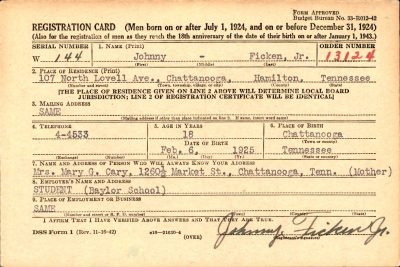 FORM APPROVED
Budget Bureau No. 33-R012-42
REGISTRATION CARD (Men born on or after July 1, 1924, and on or before December 31, 1924)
(Also for the registration of men as they reach the 18th anniversary of the date of their birth on or after January 1, 1943.)
SERIAL NUMBER 1. NAME (Print) ORDER NUMBER
W 144 Johnny - Ficken, Jr. 13124
(First) (Middle) (Last)
2. PLACE OF RESIDENCE (Print)
107 North Lovell Ave., Chattanooga, Hamilton, Tennessee
(Number and street) (Town, township, village, or city) (County) (State)
[THE PLACE OF RESIDENCE GIVEN ON LINE 2 ABOVE WILL DETERMINE LOCAL BOARD
JURISDICTION; LINE 2 OF REGISTRATION CERTIFICATE WILL BE IDENTICAL]
3. MAILING ADDRESS
SAME
[Mailing address if other than place indicated on line 2. If same, insert word same]
4. TELEPHONE 5. AGE IN YEARS 6. PLACE OF BIRTH
4-4533 18 Chattanooga
DATE OF BIRTH (Town or county)
Feb. 6, 1925 Tennessee
(Exchange) (Number) (Mo.) (Day) (Yr.) (State or country)
7. NAME AND ADDRESS OF PERSON WHO WILL ALWAYS KNOW YOUR ADDRESS
Mrs. Mary G. Cary, 1260½ Market St., Chattanooga, Tenn. (Mother)
8. EMPLOYER'S NAME AND ADDRESS
STUDENT (Baylor School)
9. PLACE OF EMPLOYMENT OR BUSINESS
SAME
(Number and street or R. F. D. number) (Town) (County) (State)
I AFFIRM THAT I HAVE VERIFIED ABOVE ANSWERS AND THAT THEY ARE TRUE.
DSS Form 1 (Rev. 11-16-42) (OVER) Johnny Ficken Jr.